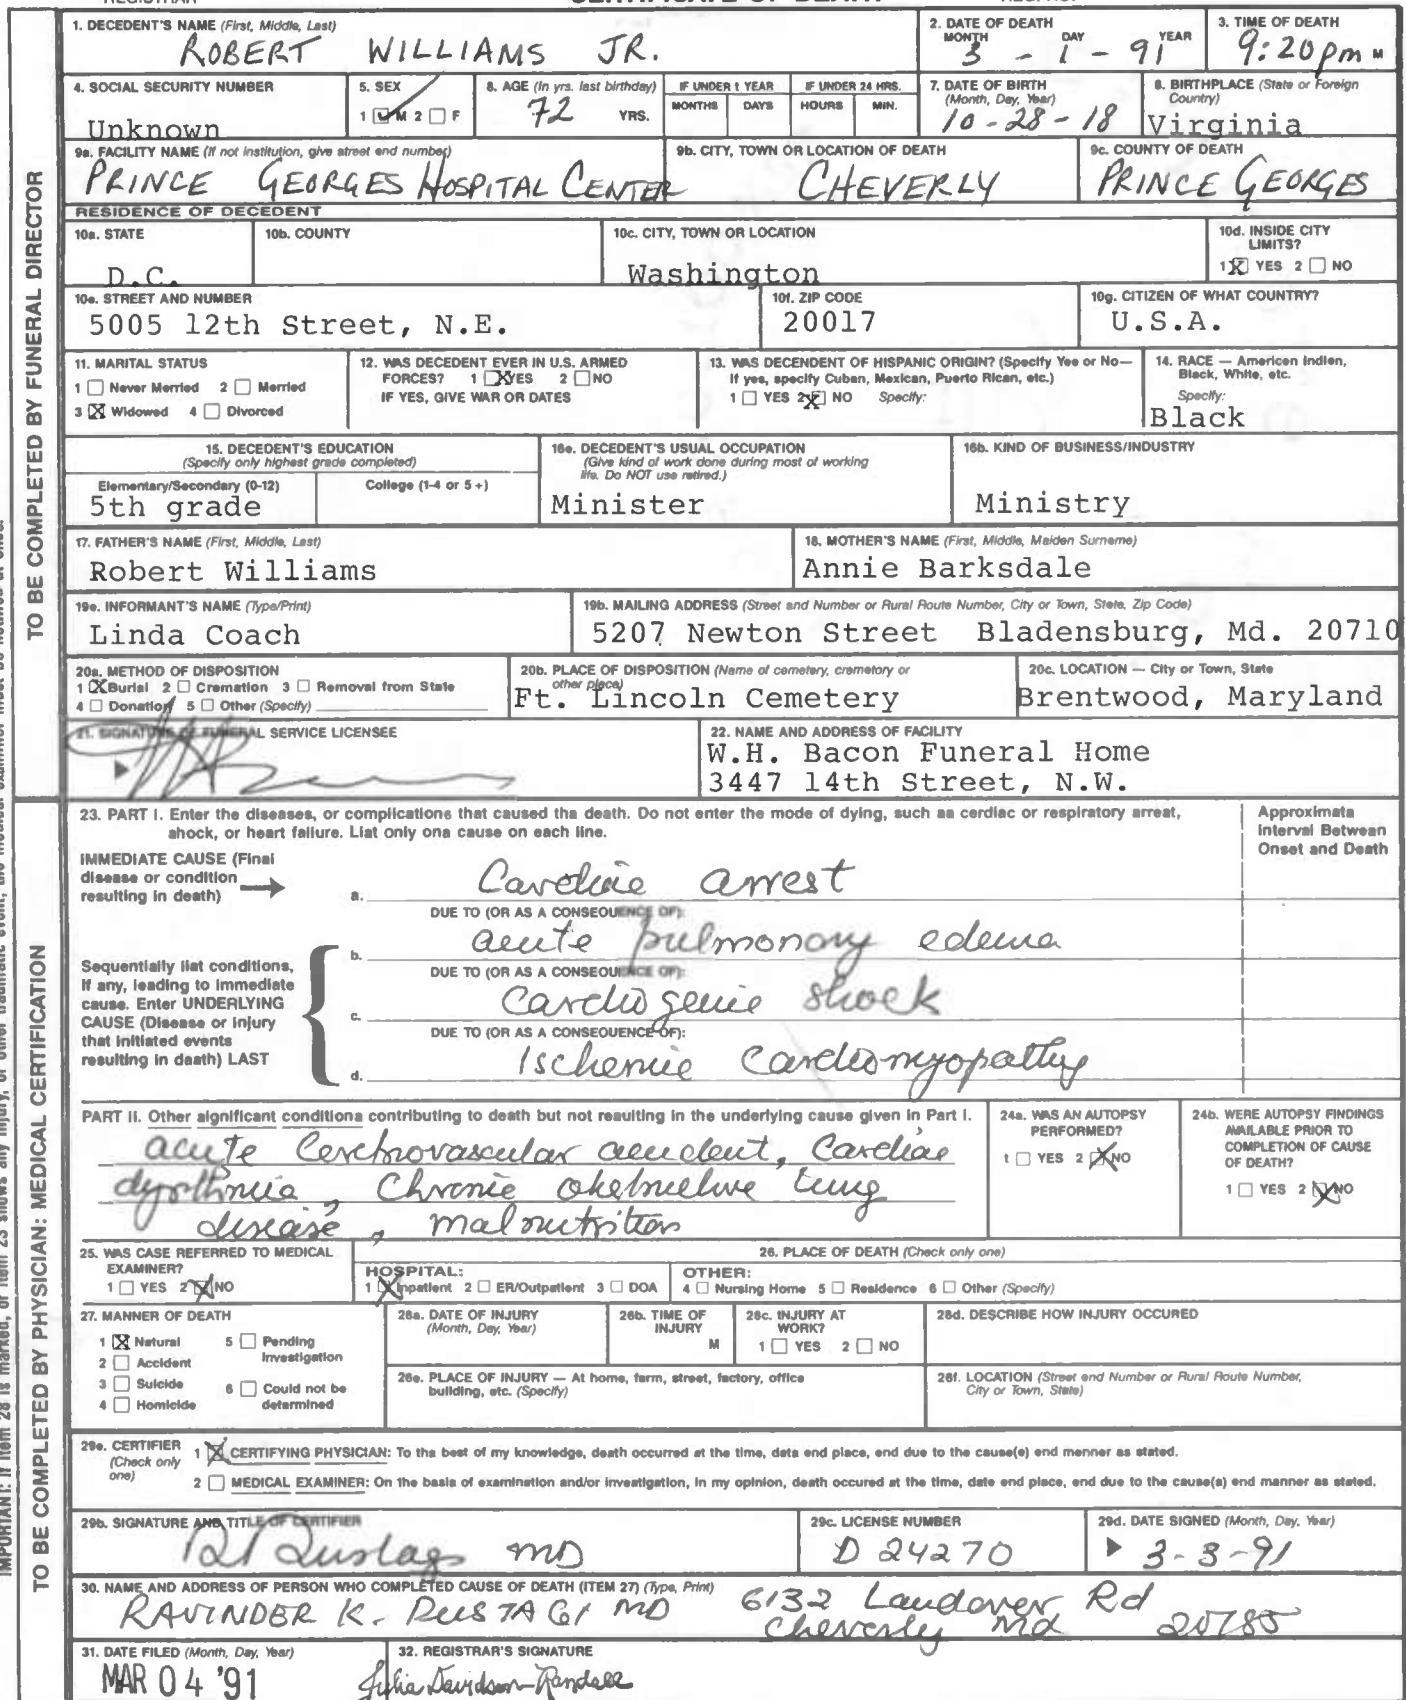 1. DECEDENT'S NAME (First, Middle, Last)
ROBERT WILLIAMS JR.
2. DATE OF DEATH
MONTH DAY YEAR
3 - 1 - 91
3. TIME OF DEATH
9:20pm M
4. SOCIAL SECURITY NUMBER
Unknown
5. SEX
1 M 2 F
6. AGE (In yrs. last birthday)
72 YRS.
IF UNDER 1 YEAR
MONTHS DAYS
IF UNDER 24 HRS.
HOURS MIN.
7. DATE OF BIRTH
(Month, Day, Year)
10-28-18
8. BIRTHPLACE (State or Foreign
Country)
Virginia
9a. FACILITY NAME (If not institution, give street and number)
PRINCE GEORGES HOSPITAL CENTER
9b. CITY, TOWN OR LOCATION OF DEATH
CHEVERLY
9c. COUNTY OF DEATH
PRINCE GEORGES
RESIDENCE OF DECEDENT
10a. STATE
D.C.
10b. COUNTY
10c. CITY, TOWN OR LOCATION
Washington
10d. INSIDE CITY
LIMITS?
1 X YES 2 NO
10e. STREET AND NUMBER
5005 12th Street, N.E.
10f. ZIP CODE
20017
10g. CITIZEN OF WHAT COUNTRY?
U.S.A.
11. MARITAL STATUS
1 Never Married 2 Married
3 X Widowed 4 Divorced
12. WAS DECEDENT EVER IN U.S. ARMED
FORCES? 1 X YES 2 NO
IF YES, GIVE WAR OR DATES
13. WAS DECENDENT OF HISPANIC ORIGIN? (Specify Yes or No—
If yes, specify Cuban, Mexican, Puerto Rican, etc.)
1 YES 2 X NO Specify:
14. RACE — American Indian,
Black, White, etc.
Specify:
Black
15. DECEDENT'S EDUCATION
(Specify only highest grade completed)
Elementary/Secondary (0-12) College (1-4 or 5+)
5th grade
16a. DECEDENT'S USUAL OCCUPATION
(Give kind of work done during most of working
life. Do NOT use retired.)
Minister
16b. KIND OF BUSINESS/INDUSTRY
Ministry
17. FATHER'S NAME (First, Middle, Last)
Robert Williams
18. MOTHER'S NAME (First, Middle, Maiden Surname)
Annie Barksdale
19a. INFORMANT'S NAME (Type/Print)
Linda Coach
19b. MAILING ADDRESS (Street and Number or Rural Route Number, City or Town, State, Zip Code)
5207 Newton Street Bladensburg, Md. 20710
20a. METHOD OF DISPOSITION
1 X Burial 2 Cremation 3 Removal from State
4 Donation 5 Other (Specify)
20b. PLACE OF DISPOSITION (Name of cemetery, crematory or
other place)
Ft. Lincoln Cemetery
20c. LOCATION — City or Town, State
Brentwood, Maryland
21. SIGNATURE OF FUNERAL SERVICE LICENSEE
22. NAME AND ADDRESS OF FACILITY
W.H. Bacon Funeral Home
3447 14th Street, N.W.
23. PART I. Enter the diseases, or complications that caused the death. Do not enter the mode of dying, such as cardiac or respiratory arrest,
shock, or heart failure. List only one cause on each line.
Approximate
Interval Between
Onset and Death
IMMEDIATE CAUSE (Final
disease or condition
resulting in death)
a. Cardiac arrest
DUE TO (OR AS A CONSEQUENCE OF):
b. acute pulmonary edema
DUE TO (OR AS A CONSEQUENCE OF):
c. Cardiogenic shock
DUE TO (OR AS A CONSEQUENCE OF):
d. Ischemic Cardiomyopathy
Sequentially list conditions,
if any, leading to immediate
cause. Enter UNDERLYING
CAUSE (Disease or injury
that initiated events
resulting in death) LAST
PART II. Other significant conditions contributing to death but not resulting in the underlying cause given in Part I.
acute Cerebrovascular accident, Cardiac
dysrthmia, Chronic obstructive lung
disease, malnutrition
24a. WAS AN AUTOPSY
PERFORMED?
1 YES 2 X NO
24b. WERE AUTOPSY FINDINGS
AVAILABLE PRIOR TO
COMPLETION OF CAUSE
OF DEATH?
1 YES 2 X NO
25. WAS CASE REFERRED TO MEDICAL
EXAMINER?
1 YES 2 X NO
26. PLACE OF DEATH (Check only one)
HOSPITAL:
1 X Inpatient 2 ER/Outpatient 3 DOA
OTHER:
4 Nursing Home 5 Residence 6 Other (Specify)
27. MANNER OF DEATH
1 X Natural 5 Pending
Investigation
2 Accident
3 Suicide 6 Could not be
determined
4 Homicide
28a. DATE OF INJURY
(Month, Day, Year)
28b. TIME OF
INJURY
M
28c. INJURY AT
WORK?
1 YES 2 NO
28d. DESCRIBE HOW INJURY OCCURED
28e. PLACE OF INJURY — At home, farm, street, factory, office
building, etc. (Specify)
28f. LOCATION (Street and Number or Rural Route Number,
City or Town, State)
29a. CERTIFIER
(Check only
one)
1 X CERTIFYING PHYSICIAN: To the best of my knowledge, death occurred at the time, date and place, and due to the cause(s) and manner as stated.
2 MEDICAL EXAMINER: On the basis of examination and/or investigation, in my opinion, death occured at the time, date and place, and due to the cause(s) and manner as stated.
29b. SIGNATURE AND TITLE OF CERTIFIER
MD
29c. LICENSE NUMBER
D 24270
29d. DATE SIGNED (Month, Day, Year)
3-3-91
30. NAME AND ADDRESS OF PERSON WHO COMPLETED CAUSE OF DEATH (ITEM 27) (Type, Print)
RAVINDER K. RUSTAGI MD 6132 Landover Rd
Cheverly Md 20785
31. DATE FILED (Month, Day, Year)
MAR 04 '91
32. REGISTRAR'S SIGNATURE
Julia Davidson-Randall
TO BE COMPLETED BY FUNERAL DIRECTOR
TO BE COMPLETED BY PHYSICIAN: MEDICAL CERTIFICATION